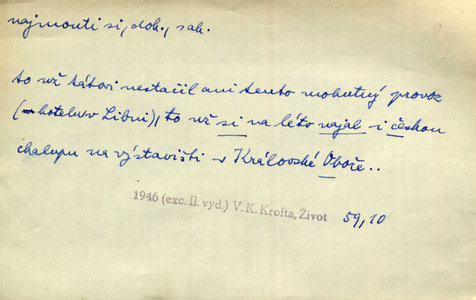 najmouti si, dok., sak.
to už tátovi nestačil ani tento mohutný provoz
(hotelu v Libni), to už si na léto najal i českou
chalupu na výstavišti v Královské Oboře..
1946 (exc. II. vyd.) V. K. Krofta, Život 59,10